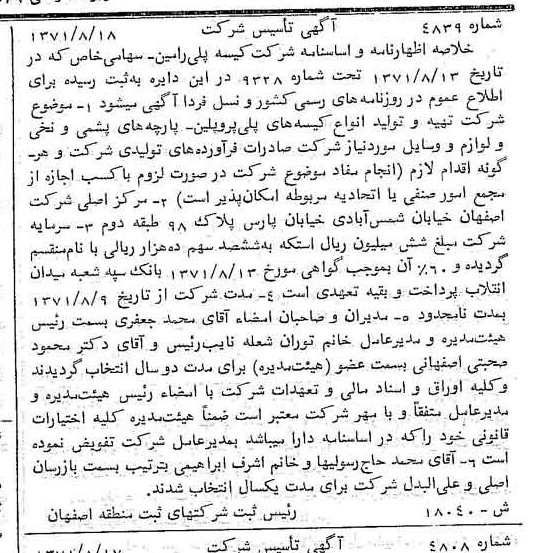 شماره ۴۸۳۹ آگهی تأسیس شرکت ۱۳۷۱/۸/۱۸
خلاصه اظهارنامه و اساسنامه شرکت کیسه پلی‌رامین- سهامی‌خاص که در
تاریخ ۱۳۷۱/۸/۱۳ تحت شماره ۹۳۲۸ در این دایره به‌ثبت رسیده برای
اطلاع عموم در روزنامه‌های رسمی کشور و نسل فردا آگهی میشود ۱- موضوع
شرکت تهیه و تولید انواع کیسه‌های پلی‌پروپلین- پارچه‌های پشمی و نخی
و لوازم و وسایل موردنیاز شرکت صادرات فرآورده‌های تولیدی شرکت و هر-
گونه اقدام لازم (انجام مفاد موضوع شرکت در صورت لزوم باکسب اجازه از
مجمع امور صنفی یا اتحادیه مربوطه امکان‌پذیر است) ۲- مرکز اصلی شرکت
اصفهان خیابان شمس‌آبادی خیابان پارس پلاک ۹۸ طبقه دوم ۳- سرمایه
شرکت مبلغ شش میلیون ریال استکه به‌ششصد سهم ده‌هزار ریالی با نام‌منقسم
گردیده و ۶۰٪ آن بموجب گواهی مورخ ۱۳۷۱/۸/۱۳ بانک سپه شعبه میدان
انقلاب پرداخت و بقیه تعهدی است ۴- مدت شرکت از تاریخ ۱۳۷۱/۸/۹
بمدت نامحدود ۵- مدیران و صاحبان امضاء آقای محمد جعفری بسمت رئیس
هیئت‌مدیره و مدیرعامل خانم توران شعله نایب‌رئیس و آقای دکتر محمود
صحبتی اصفهانی بسمت عضو (هیئت‌مدیره) برای مدت دو سال انتخاب گردیدند
وکلیه اوراق و اسناد مالی و تعهدات شرکت با امضاء رئیس هیئت‌مدیره و
مدیرعامل متفقاً و با مهر شرکت معتبر است ضمناً هیئت‌مدیره کلیه اختیارات
قانونی خود راکه در اساسنامه دارا میباشد بمدیرعامل شرکت تفویض نموده
است ۶- آقای محمد حاج‌رسولیها و خانم اشرف ابراهیمی بترتیب بسمت بازرسان
اصلی و علی‌البدل شرکت برای مدت یکسال انتخاب شدند.
ش - ۱۸۰۴۰ رئیس ثبت شرکتهای ثبت منطقه اصفهان
شماره ۴۸۰۸ آگهی تأسیس شرکت ۱۳۷۱/۸/۱۷